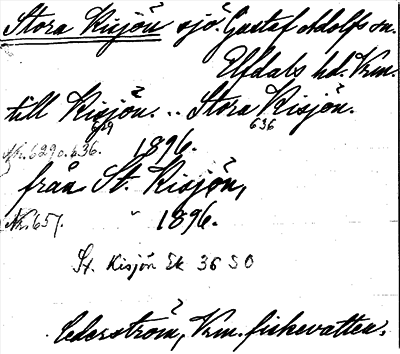 Stora Kisjön sjö. Gustaf Adolfs sn.
Elfdals hd. Vrm.
till Kisjön. .. Stora Kisjön.
629 636
Nr. 629 o. 636. 1896.
från St. Kisjön,
Nr. 657. " 1896.
St. Kisjön Ek 36 SO
Cederström, Vrm. fiskevatten.